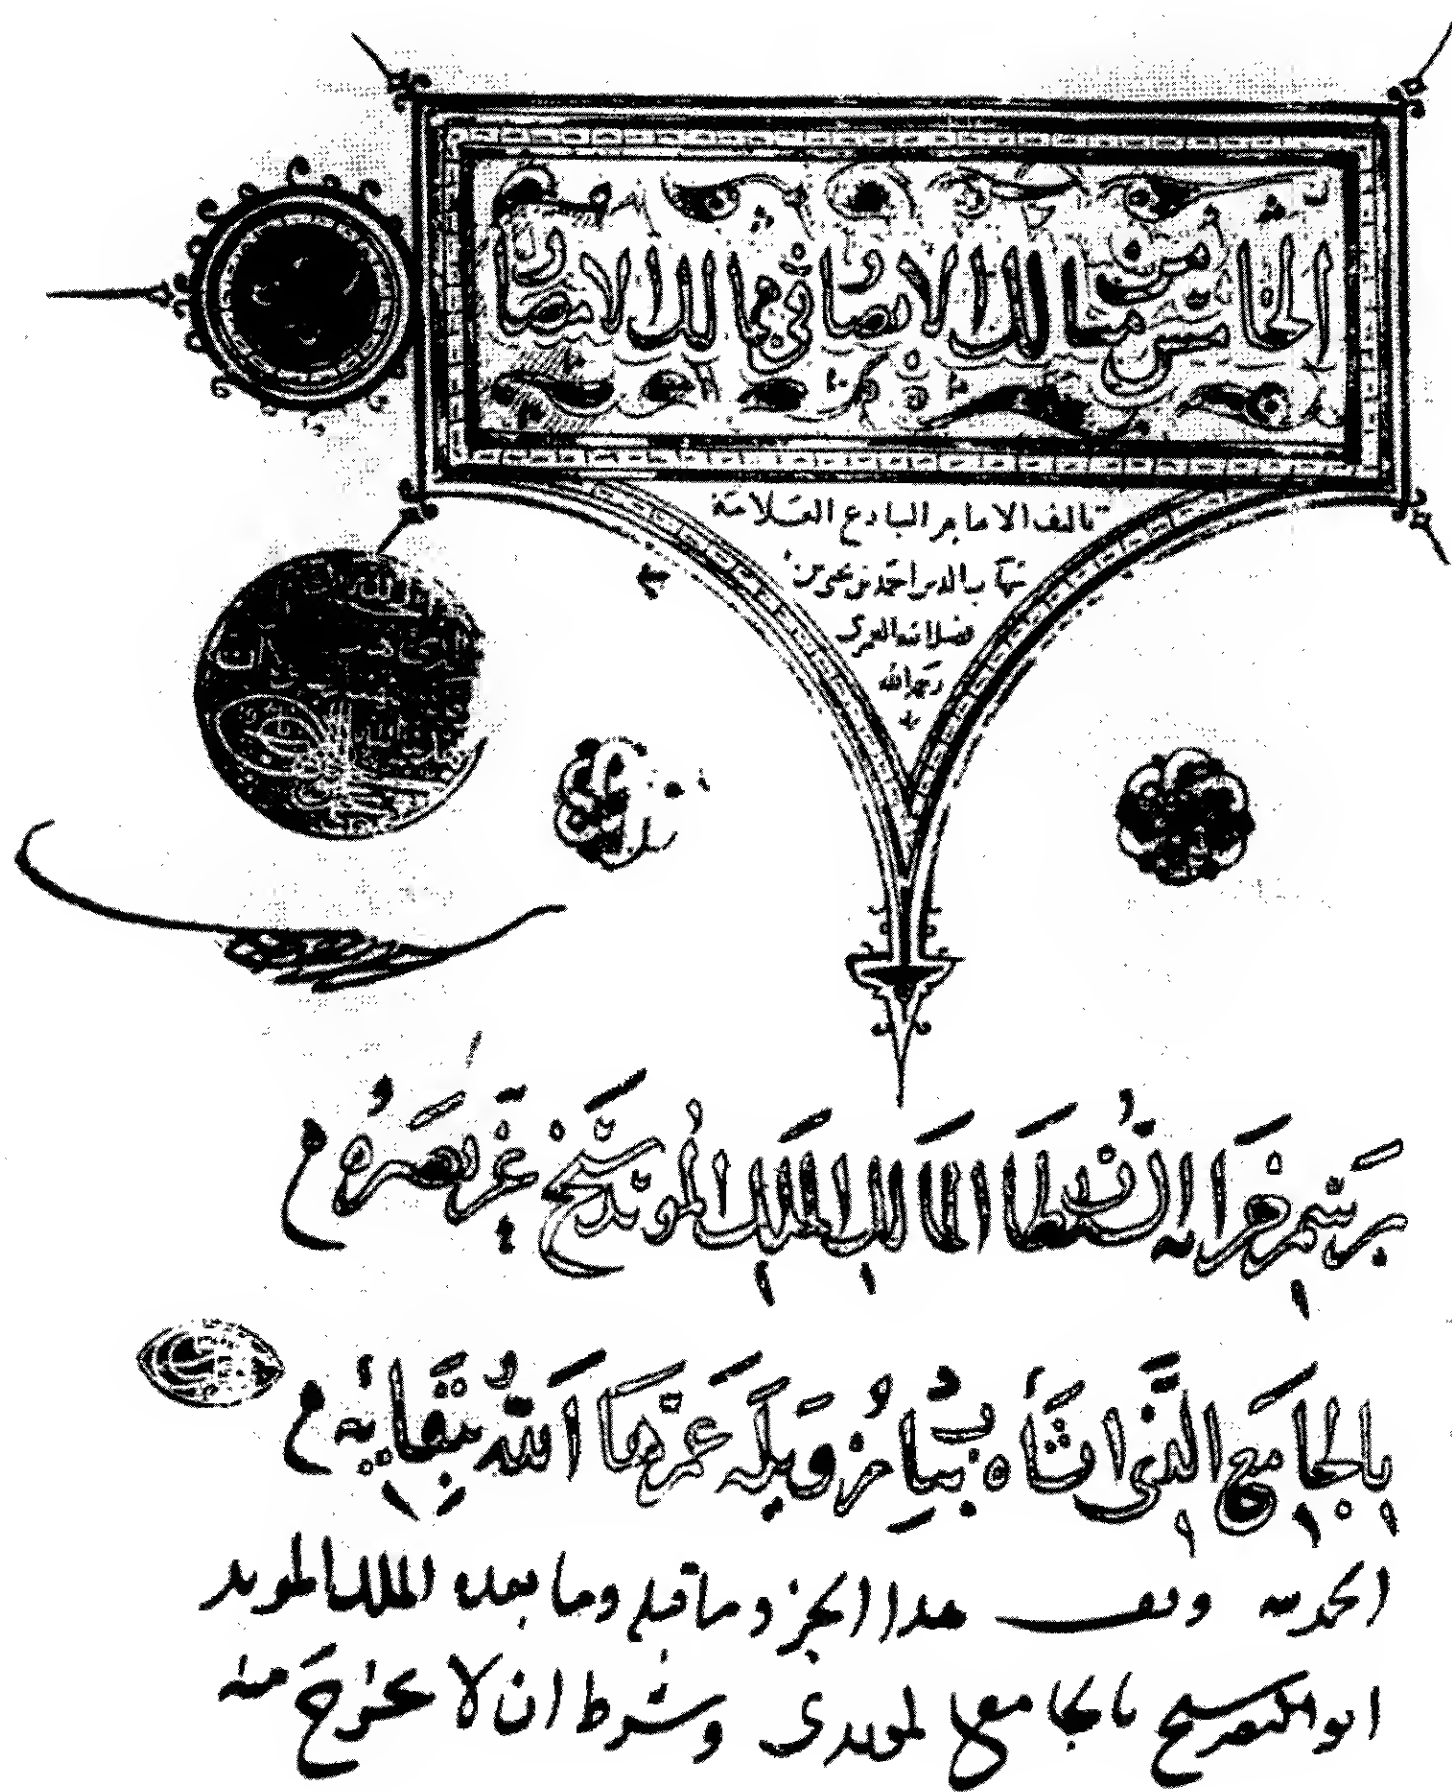 الخامس من مسالك الابصار في ممالك الامصار
تاليف الامام البارع العلامة
شهاب الدين احمد بن يحيى بن
فضل الله العمرى
رحمه الله
برسم خزانة السلطان المالك الملك المويد شيخ عز نصره
بالجامع الذى انشاه بباب زويلة عمرها الله ببقايه
الحمد لله وقف هدا الجز وما قبله وما بعده الملك المويد
ابو النصر شيخ بالجامع المويدى وشرط ان لا يخرج منه